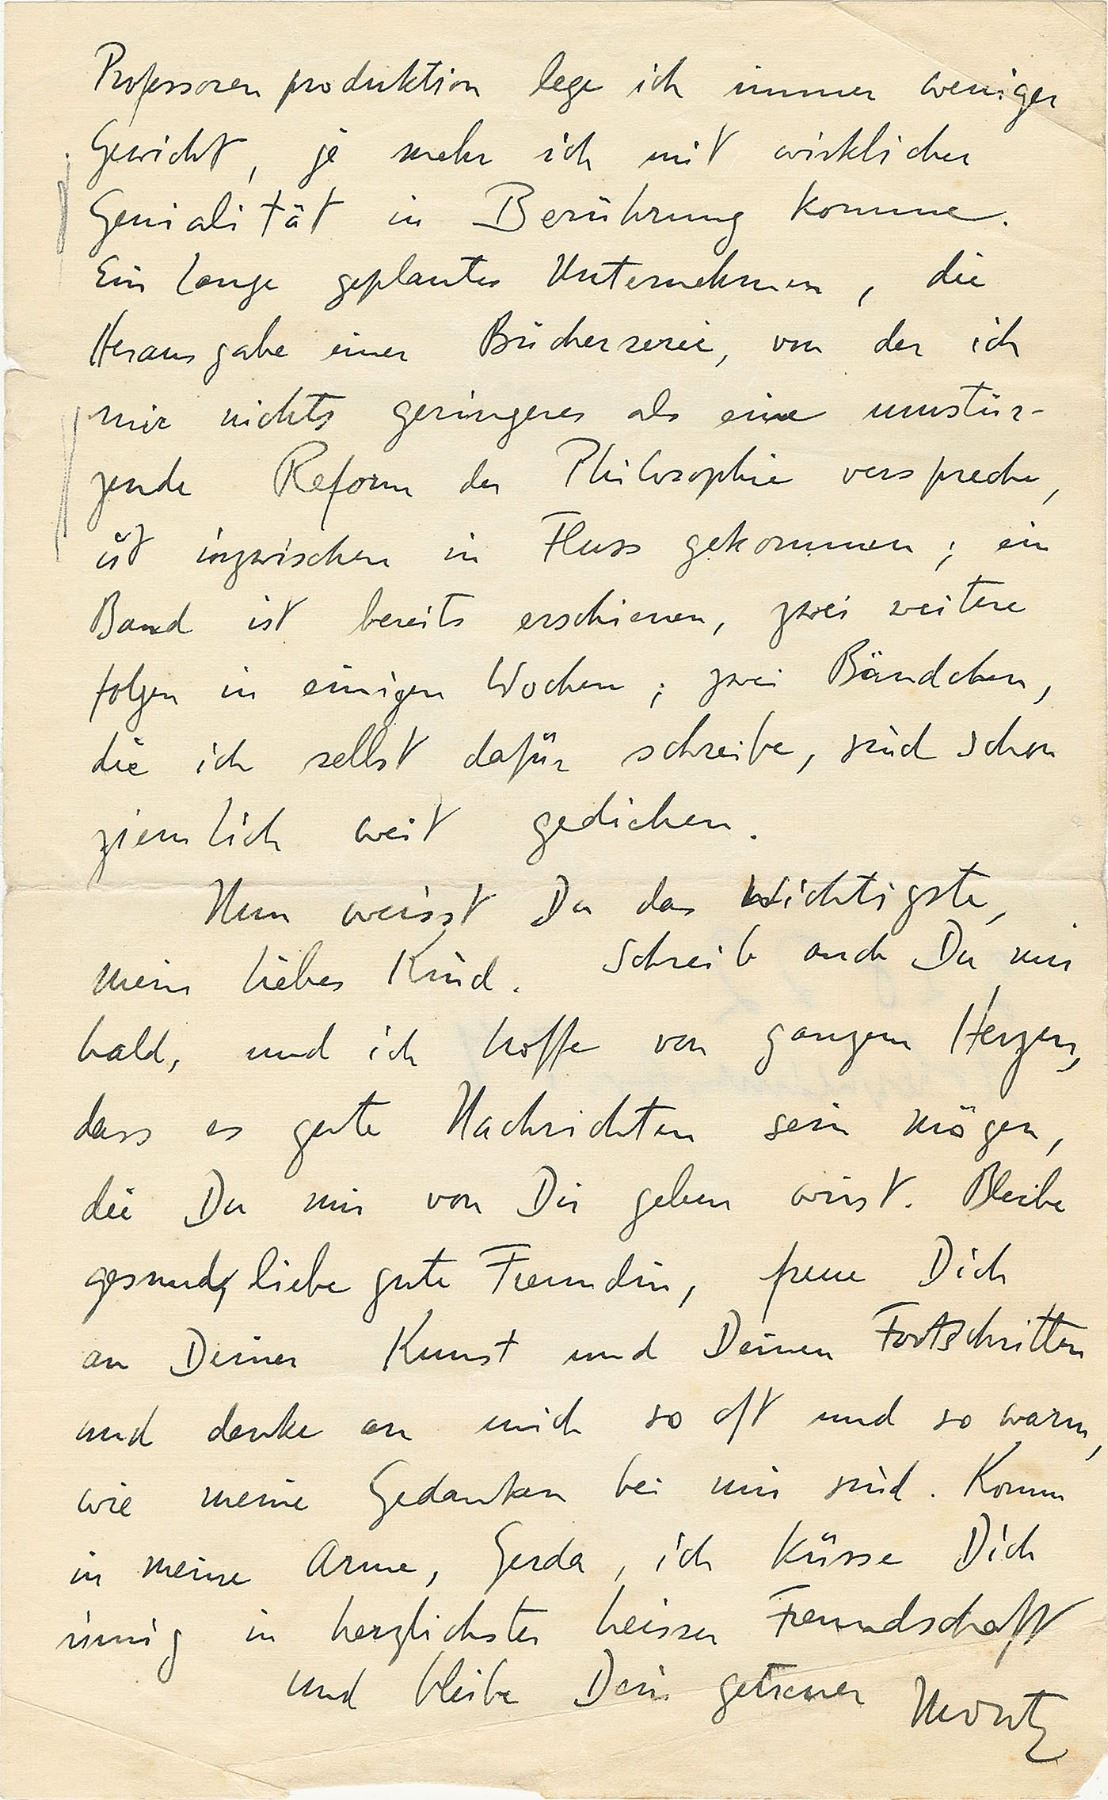 Professorenproduktion lege ich immer weniger
Gewicht, je mehr ich mit wirklicher
Genialität in Berührung komme.
Ein lange geplantes Unternehmen, die
Herausgabe einer Bücherserie, von der ich
mir nichts geringeres als eine umstür-
zende Reform der Philosophie verspreche,
ist inzwischen in Fluss gekommen; ein
Band ist bereits erschienen, zwei weitere
folgen in einigen Wochen; zwei Bändchen,
die ich selbst dafür schreibe, sind schon
ziemlich weit gediehen.
Nun weisst Du das Wichtigste,
mein liebes Kind. Schreib auch Du mir
bald, und ich hoffe von ganzem Herzen,
dass es gute Nachrichten sein mögen,
die Du mir von Dir geben wirst. Bleibe
gesund, liebe gute Freundin, freue Dich
an Deiner Kunst und Deinen Fortschritten
und denke an mich so oft und so warm,
wie meine Gedanken bei mir sind. Komm
in meine Arme, Gerda, ich küsse Dich
innig in herzlichster heisser Freundschaft
und bleibe Dein getreuer Moritz